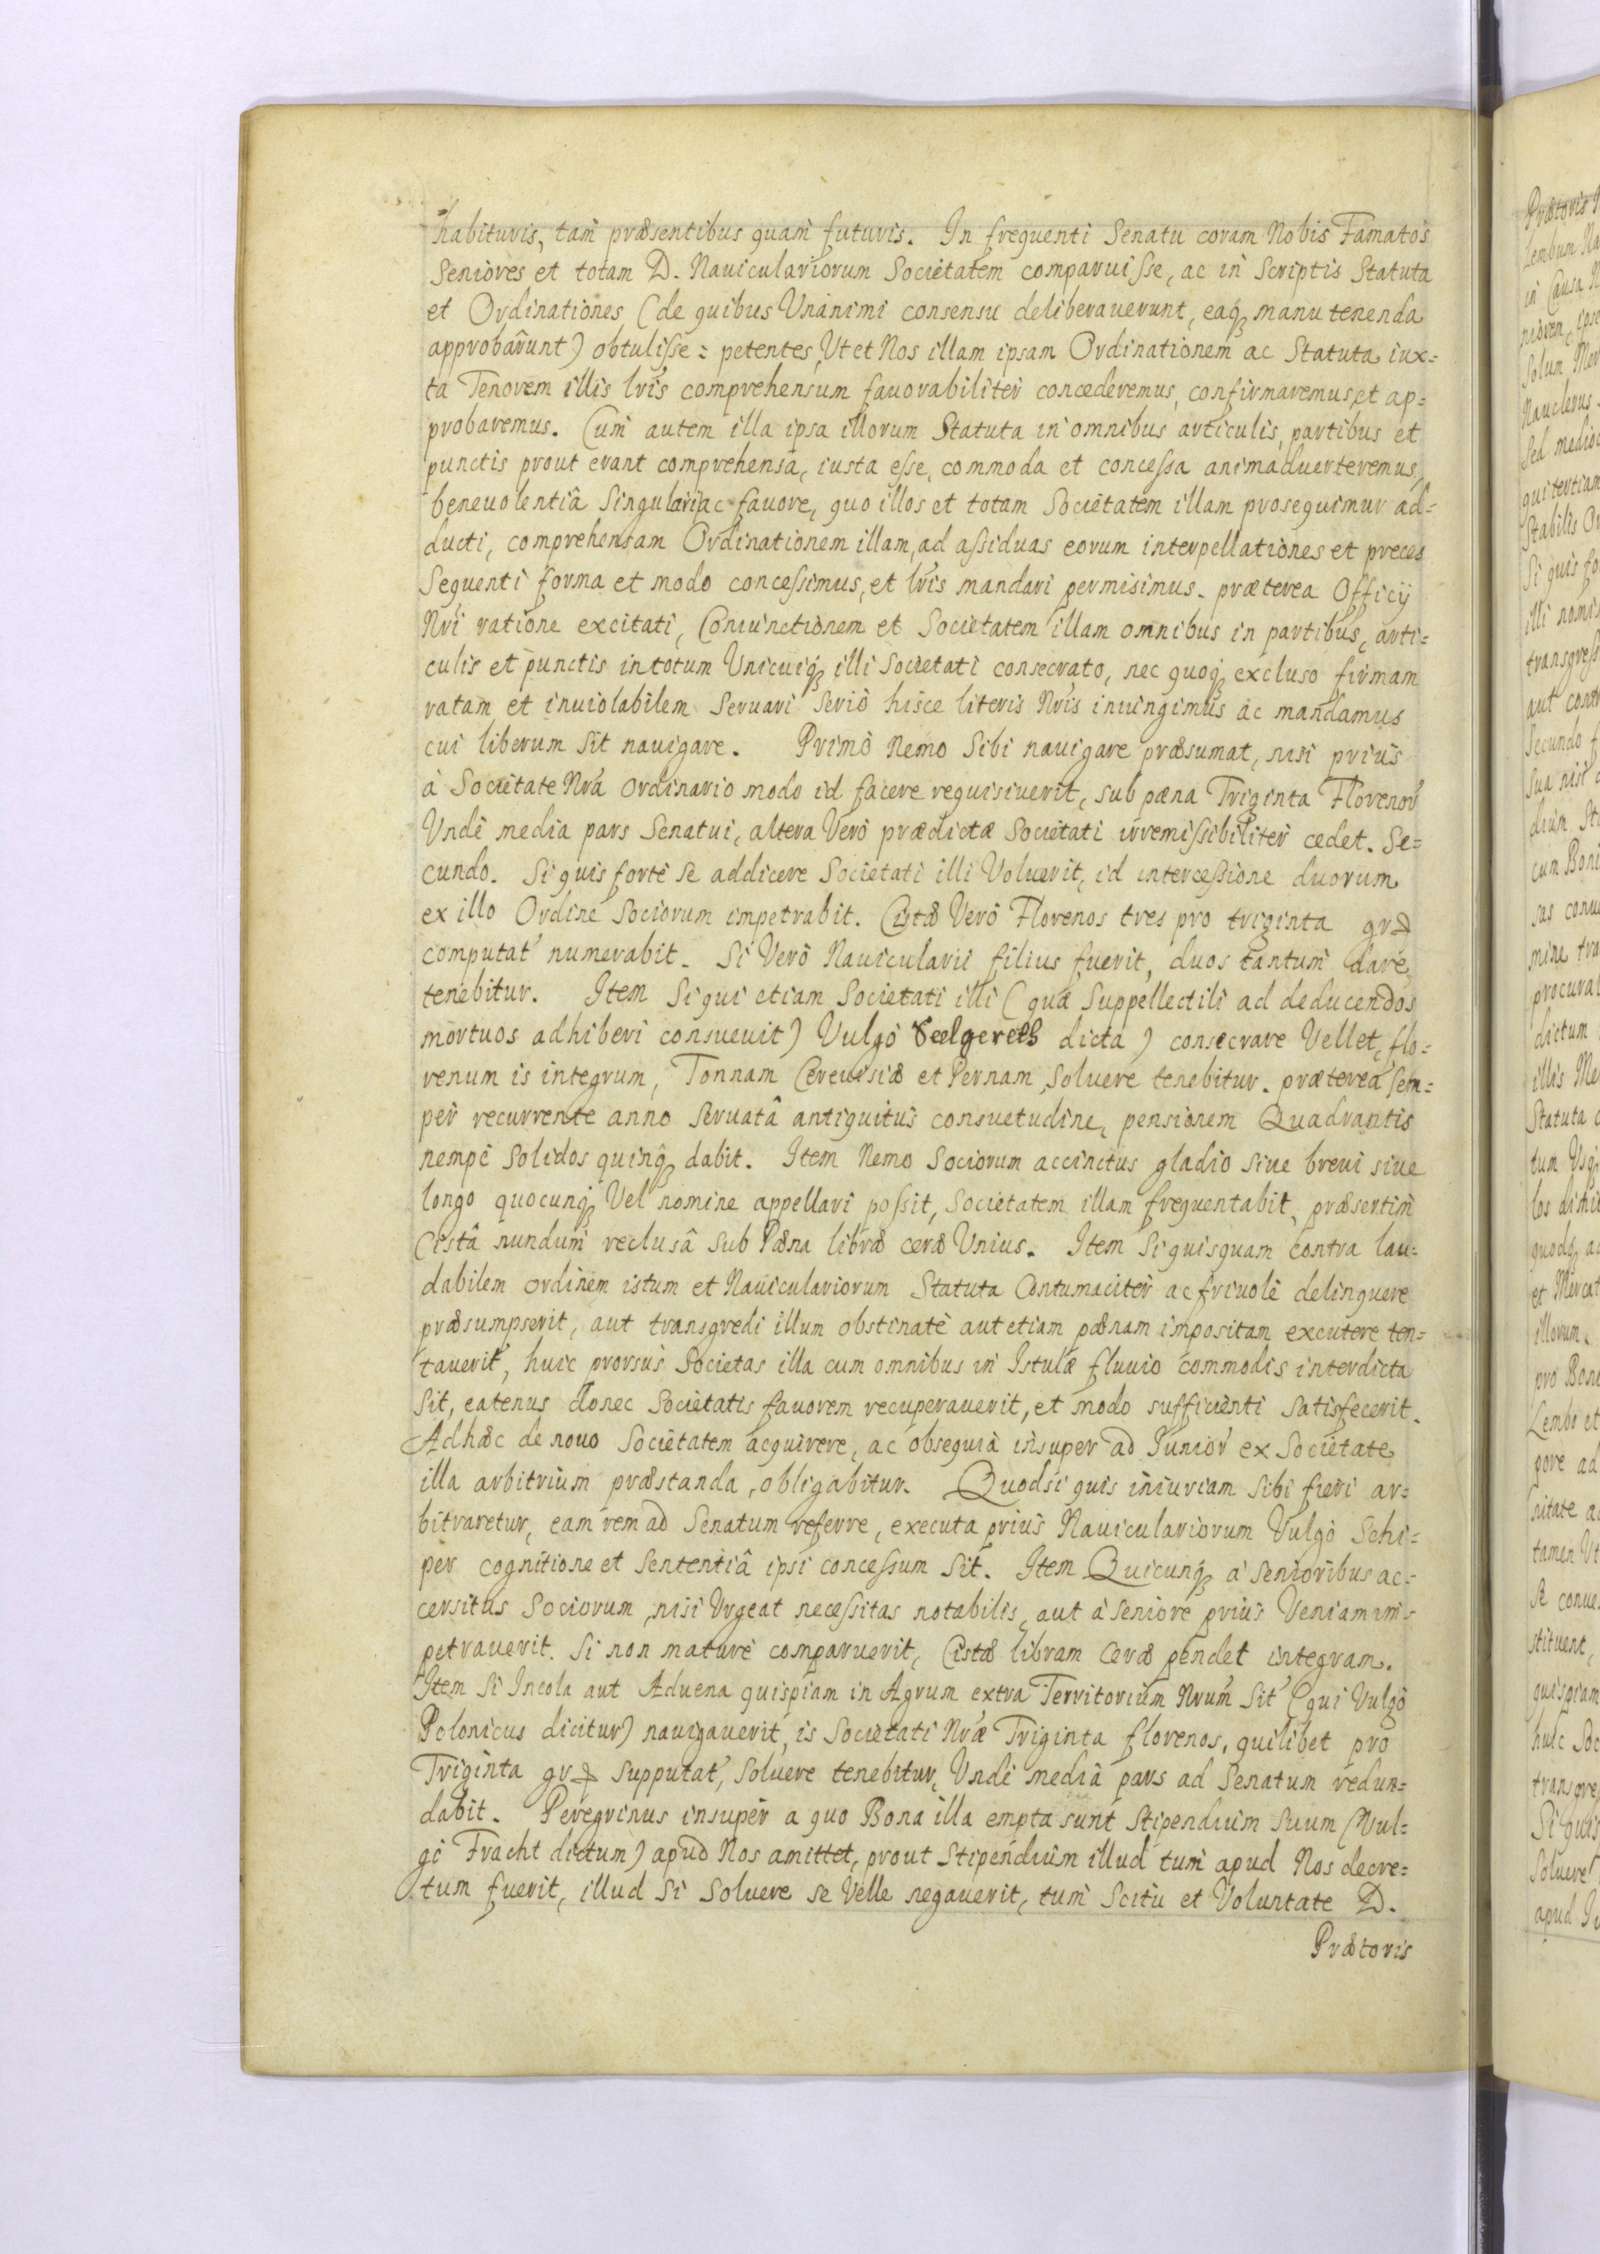 habituris, tam præsentibus quam futuris. In frequenti Senatu coram Nobis Famatos
Seniores et totam D. Nauiculariorum Societatem comparuisse, ac in Scriptis Statuta
et Ordinationes (de quibus Unanimi consensu deliberauerunt, eaqꝫ manu tenenda
approbârunt) obtulisse: petentes, Ut et Nos illam ipsam Ordinationem ac Statuta iux=
ta Tenorem illis lris comprehensum fauorabiliter concederemus, confirmaremus, et ap=
probaremus. Cum autem illa ipsa illorum Statuta in omnibus articulis, partibus et
punctis prout erant comprehensa, iusta esse, commoda et concessa animaduerteremus,
beneuolentiâ Singulari ac fauore, quo illos et totam Societatem illam prosequimur ad=
ducti, comprehensam Ordinationem illam, ad assiduas eorum interpellationes et preces
Sequenti forma et modo concessimus, et lris mandari permisimus. præterea Officij
Nri ratione excitati, Coniunctionem et Societatem illam omnibus in partibus, arti=
culis et punctis in totum Unicuiqꝫ illi Societati consecrato, nec quoqꝫ excluso firmam
ratam et inuiolabilem Seruari Seriò hisce literis Nris iniungimus ac mandamus
cui liberum Sit nauigare. Primò Nemo Sibi nauigare præsumat, nisi prius
à Societate Nra Ordinario modo id facere requisiuerit, sub pæna Triginta Florenor
Unde media pars Senatui, altera Verò prædictæ Societati irremissibiliter cedet. Se=
cundo. Si quis fortè se addicere Societati illi Voluerit, id intercessione duorum
ex illo Ordine Sociorum impetrabit. Cistæ Verò Florenos tres pro triginta gr
computat numerabit. Si Verò Nauicularii filius fuerit, duos tantum dare
tenebitur. Item Si qui etiam Societati illi (quæ Suppellectili ad deducendos
mortuos adhiberi consueuit) Vulgò Seelgereth dicta) consecrare Vellet, flo=
renum is integrum, Tonnam Cereuisiæ et Pernam, Soluere tenebitur. præterea Sem=
per recurrente anno Seruatâ antiquitus consuetudine, pensionem Quadrantis
nempe Solidos quinqꝫ dabit. Item Nemo Sociorum accinctus gladio siue breui siue
longo quocunqꝫ Vel nomine appellari possit, Societatem illam frequentabit, præsertim
Cistâ nundum reclusâ Sub Pæna libræ ceræ Unius. Item Si quisquam contra lau=
dabilem ordinem istum et Nauiculariorum Statuta Contumaciter ac friuolè delinquere
præsumpserit, aut transgredi illum obstinatè aut etiam pænam impositam excutere ten=
tauerit, huic prorsus Societas illa cum omnibus in Istulæ fluuio commodis interdicta
Sit, eatenus donec Societatis fauorem recuperauerit, et modo sufficienti Satisfecerit.
Adhæc de nouo Societatem acquirere, ac obsequia insuper ad Junior ex Societate
illa arbitrium præstanda, obligabitur. Quodsi quis iniuriam Sibi fieri ar=
bitraretur, eam rem ad Senatum referre, executa prius Nauiculariorum Vulgò Schi=
per cognitione et Sententiâ ipsi concessum Sit. Item Quicunqꝫ à Senioribus ac=
cersitus Sociorum, nisi Urgeat necessitas notabilis, aut à Seniore prius Veniam im=
petrauerit. Si non maturè comparuerit, Cistæ libram Ceræ pendet integram.
Item Si Incola aut Aduena quispiam in Agrum extra Territorium Nrum Sit (qui Vulgò
Polonicus dicitur) nauigauerit, is Societati Nræ Triginta florenos, quilibet pro
Triginta gr supputat, Soluere tenebitur, Unde media pars ad Senatum redun=
dabit. Peregrinus insuper a quo Bona illa empta sunt Stipendium Suum (Vul=
gò Fracht dictum) apud Nos amittet, prout Stipendium illud tum apud Nos decre=
tum fuerit, illud Si Soluere se Velle negauerit, tum Scitu et Voluntate D.
Prætoris